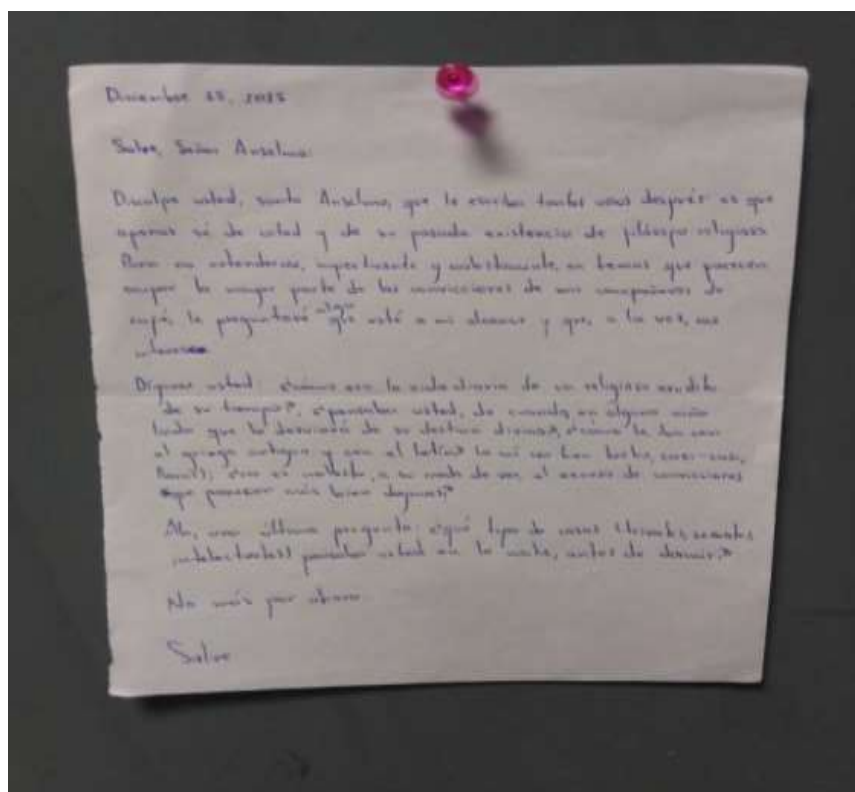 Diciembre 25, 2025
Salve, Señor Anselmo:
Disculpe usted, santo Anselmo, que le escriba tantos años después es que
apenas sé de usted y de su pasada existencia de filósofo religioso
Para no extenderme, en temas que parecen
ocupar la mayor parte de las convicciones de mis compañeros de
café, le preguntaré algo que esté a mi alcance y que, a la vez, me
interese
Dígame usted: ¿cómo era la vida diaria de un religioso erudito
de su tiempo?, ¿pensaba usted, de cuando en
que lo de su destino divino?, ¿cómo le iba con
el griego antiguo y con el latín?
a su modo de ver, el exceso de convicciones
que parecen más bien dogmas?
Ah, una última pregunta: ¿qué tipo de cosas
intelectuales) pensaba usted en la noche, antes de dormir?
No más por ahora
Salve